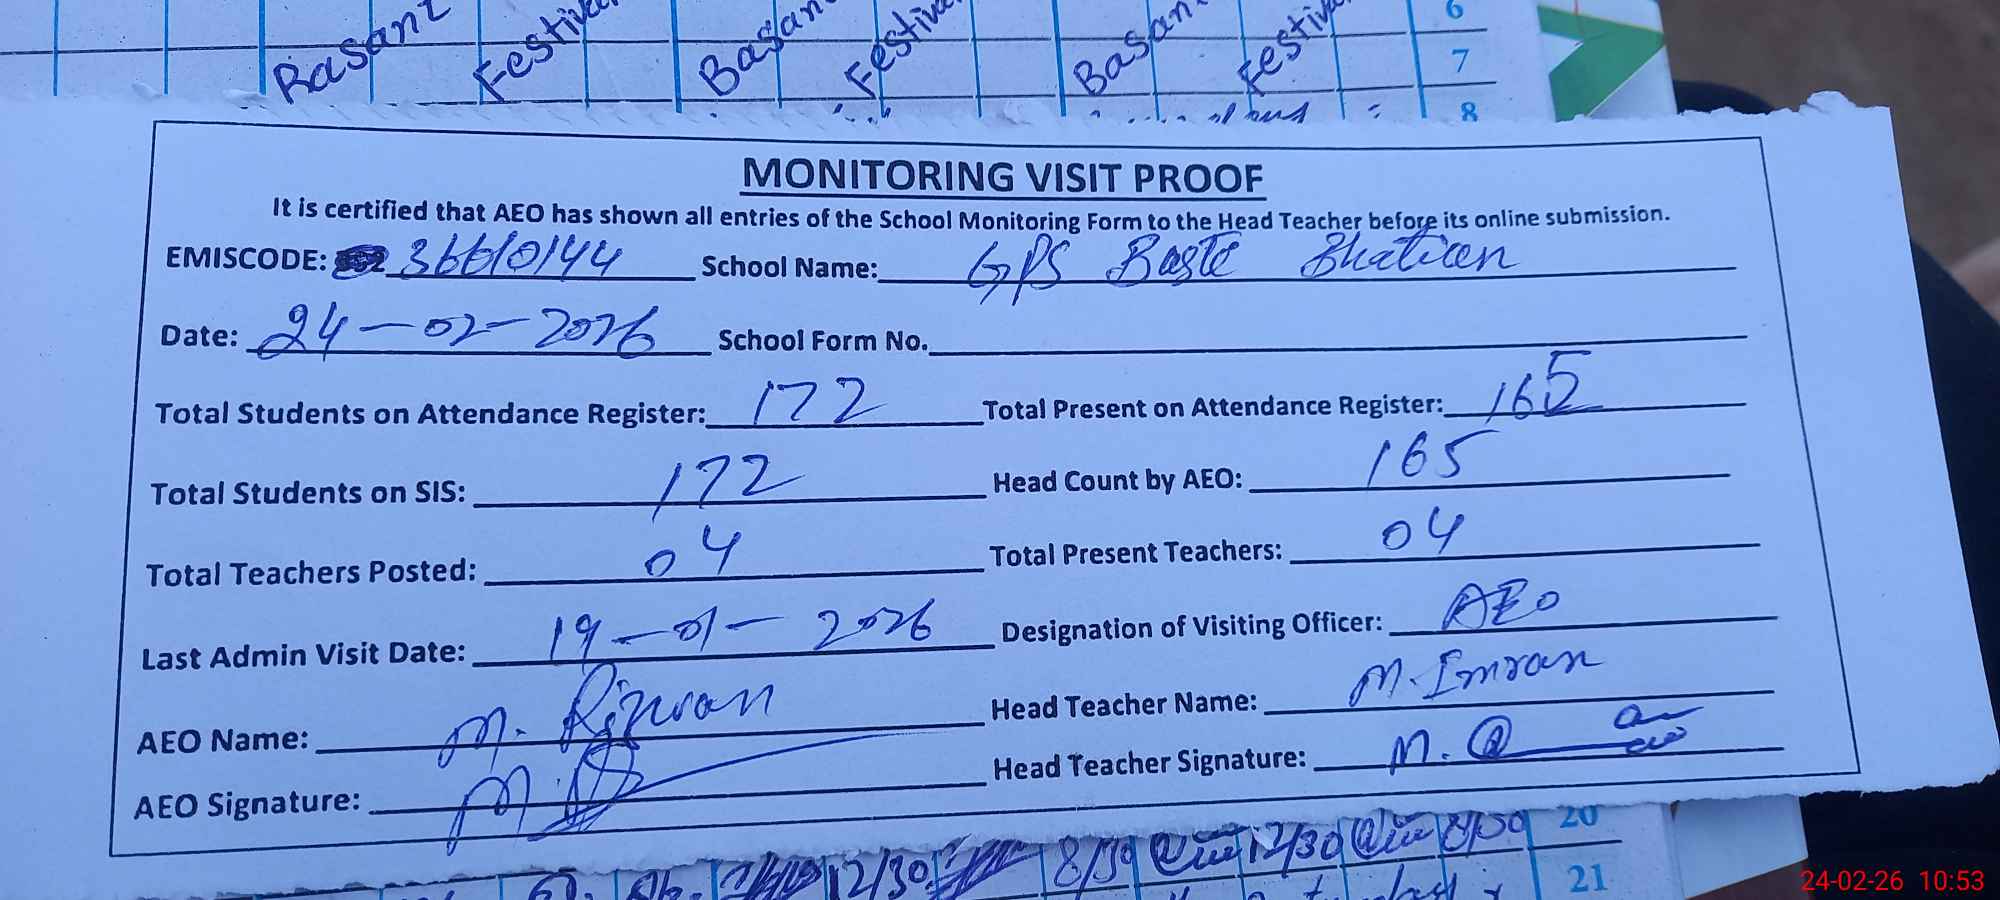 Basant Festival Basant Festival Basant Festival
6
7
8
MONITORING VISIT PROOF
It is certified that AEO has shown all entries of the School Monitoring Form to the Head Teacher before its online submission.
EMISCODE: 36610144 School Name: GPS Baste Bhatian
Date: 24-02-2026 School Form No.
Total Students on Attendance Register: 172 Total Present on Attendance Register: 165
Total Students on SIS: 172 Head Count by AEO: 165
Total Teachers Posted: 04 Total Present Teachers: 04
Last Admin Visit Date: 19-01-2026 Designation of Visiting Officer: AEO
AEO Name: M. Rizwan Head Teacher Name: M. Imran
AEO Signature: Head Teacher Signature:
12/30 8/30 12/30 8/30 20
21
24-02-26 10:53